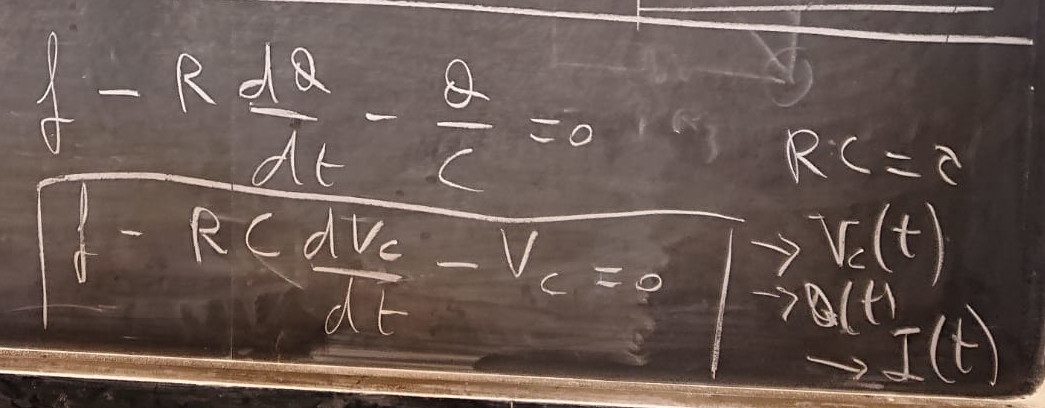 f - R dQ/dt - Q/C = 0
RC = τ
f - RC dVc/dt - Vc = 0
→ Vc(t)
→ Q(t)
→ I(t)